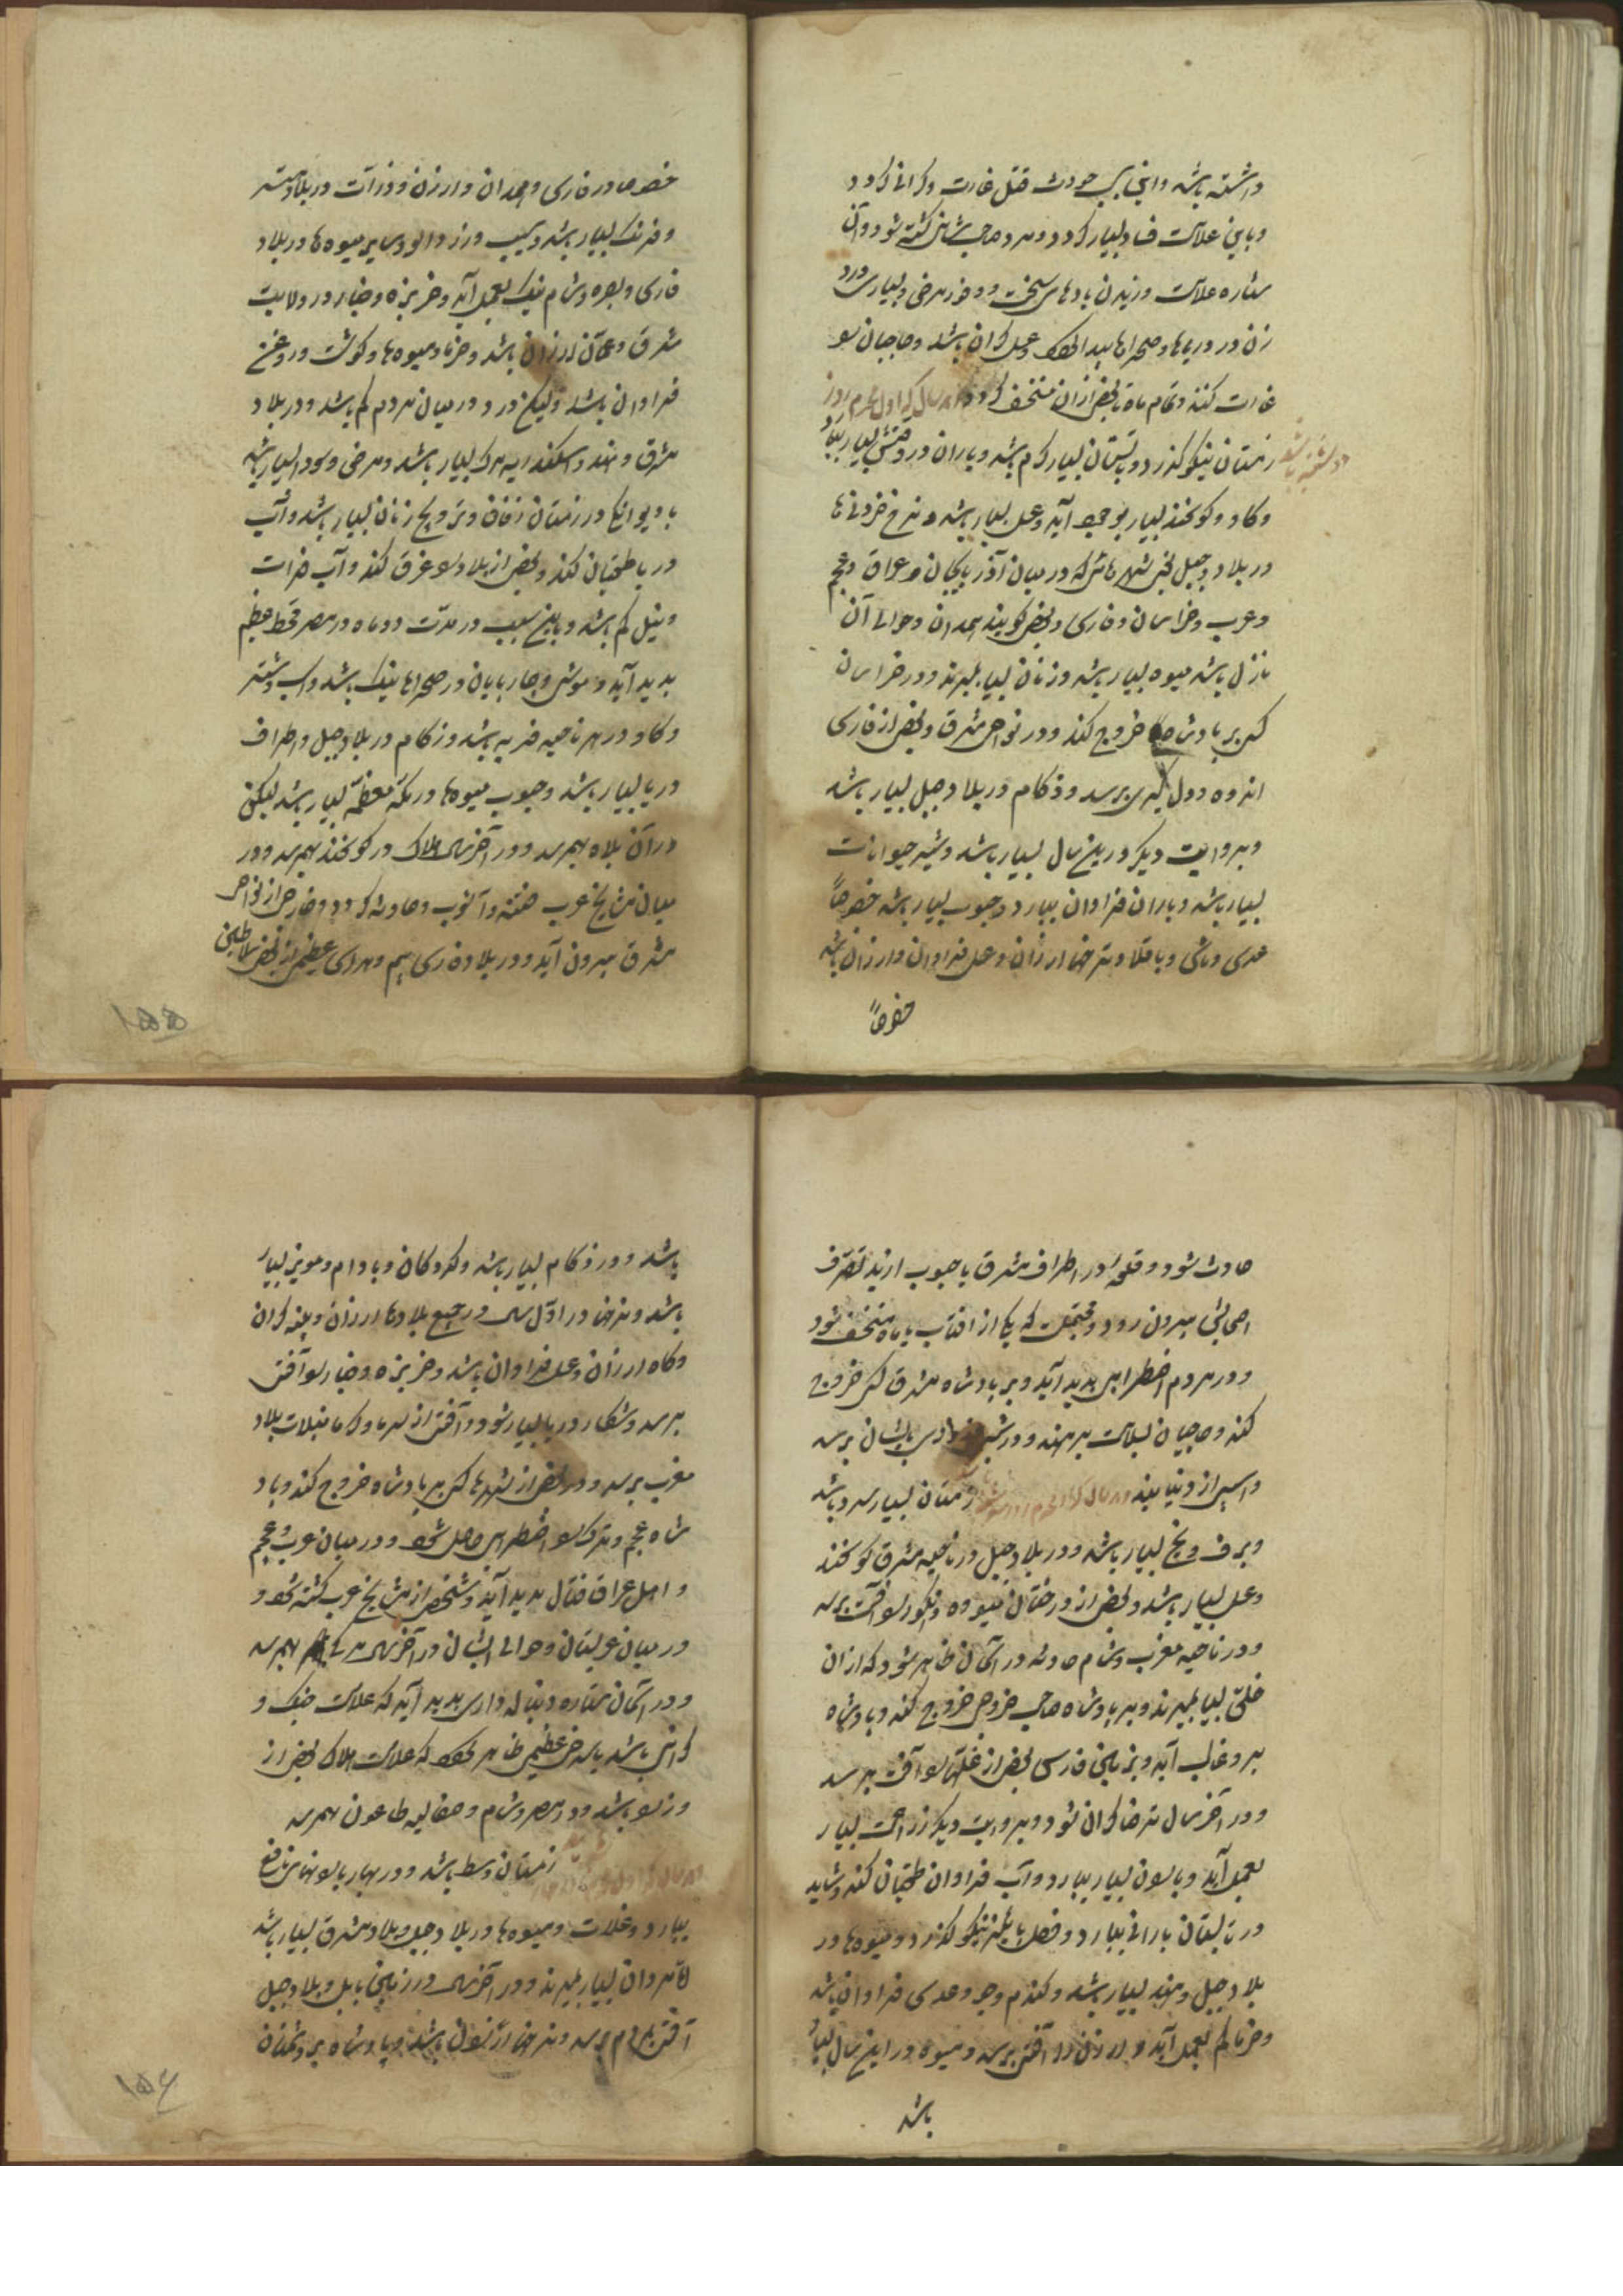 داشته باشد و این سبب حدوث قتل و غارت و گرانی گردد
و باین علامت فساد بسیار گردد و مرد صاحب شانی کشته شود و آن
ستاره علامت وزیدن بادهای سخت و وفور مرض و بسیار
زن در دریاها و صحراها پیدا و عسل گران باشد و حاجیان را
غارت کنند و تمام ماه یا بعضی از آن منخسف گردد در سال که اول محرم روز
دوشنبه باشد
زمستان نیکو گذرد و تابستان بسیار گرم باشد و باران در وقتش بسیار ببارد
و گاو و گوسفند بسیار بوجود آید و عسل بسیار باشد و نرخ خوردنی‌ها
در بلاد جبل یعنی شهرهائی که در میان آذربایجان و عراق و عجم
و عرب و خراسان و فارس و بعضی گویند همدان و حوالی آن
نازل باشد میوه بسیار باشد و زنان بسیار بمیرند و در خراسان
کسی بر پادشاه خروج کند و در نواحی مشرق و بعضی از فارس
اندوه و دلگیری برسد و زکام در بلاد جبل بسیار باشد
و بروایت دیگر درین سال بسیار باشد و شیر حیوانات
بسیار باشد و باران فراوان ببارد و حبوب بسیار باشد خصوصاً
عدس و ماش و باقلا و نرخها ارزان و عسل فراوان و ارزان باشد
خصوصاً
خصوصا در فارس و همدان و ارزن و ذرات در بلاد
و فرنگ بسیار باشد و سیب و زردآلو و سایر میوه‌ها در بلاد
فارس و بصره و شام نیک بعمل آید و خربزه و خیار در ولایت
مشرق و عمان ارزان باشد و خرما و میوه‌ها و گوشت و روغن
فراوان باشد و لیکن درد در میان مردم کم باشد و در بلاد
مشرق و هند و اسکندریه مرگ بسیار باشد و مرض و سودا بسیار باشد
با دیوانگی و در زمستان زفاف و تزویج زنان بسیار باشد و آب
دریا طغیان کند و بعضی از بلاد را غرق کند و آب فرات
و نیل کم باشد و باین سبب در مدت دو ماه در مصر قحط عظیم
پدید آید و مواشی و چارپایان در صحراها نیک باشد و اسب و شتر
و گاو در هر ناحیه فربه باشد و زکام در بلاد جبل و اطراف
دریا بسیار باشد و حبوب میوه‌ها در مکه معظمه بسیار باشد لیکن
در آن بلاء بهم رسد و در آخر سال هلاک در گوسفند بهم رسد و در
میان مشایخ عرب فتنه و آشوب و حادثه گردد و خارجی از نواحی
مشرق بیرون آید و در بلاد فارس بیم و هراس عظیم از بعضی سلاطین
۱۵۵
حادث شود و قلعه در اطراف مشرق یا جنوب از ید تصرف
اصحابش بیرون رود و محتملست که یکی از آفتاب یا ماه منخسف شود
و در مردم اضطرابی پدید آید و بر پادشاه مشرق کسی خروج
کند و حاجیان بسلامت برهند و در شب بایشان برسد
و آسیب از دنیا بینند در سال که اول محرم روز زمستان بسیار سرد باشد
و برف و یخ بسیار باشد و در بلاد جبل و در ناحیه مشرق گوسفند
و عسل بسیار باشد و بعضی از درختان میوه و انگور را آفت برسد
و در ناحیه مغرب و شام حادثه در آسمان ظاهر شود که از آن
خلق بسیار بمیرند و بر پادشاه صاحب خروجی خروج کند و پادشاه
برو غالب آید و بزمین فارس بعضی از غلها را آفت برسد
و در آخر سال نرخها گران شود و بروایت دیگر زراعت بسیار
بعمل آید و باران بسیار ببارد و آب فراوان طغیان کند و شاید
در تابستان بارانی ببارد و فصل پائیز نیکو گذرد و میوه‌ها در
بلاد جبل و هند بسیار باشد و گندم و جو و عدس فراوان باشد
و خرما کم بعمل آید و ارزن را آفتی برسد و میوه در این سال بسیار
باشد
باشد و درد زکام بسیار باشد و گردکان و بادام و مویز بسیار
باشد و نرخها در اول سال در جمیع بلادها ارزان و پنبه گران
و کاه ارزان و عسل فراوان باشد و خربزه و خیار را آفتی
برسد و شکار دریا بسیار شود و آفتی از سرما و گرما بغلات بلاد
مغرب برسد و در بعضی از شهرها کسی بر پادشاه خروج کند و پاد
شاه عجم و ترک را اضطرابی حاصل شود و در میان عرب و عجم
و اهل عراق قتال پدید آید و شخصی از مشایخ عرب کشته شود و
در میان عربستان و حوالی ایشان در آخر سال مرگ بهم رسد
و در آسمان ستاره دنباله‌داری پدید آید که علامت جنگ و
گرانی باشد یا سرخی عظیمی ظاهر شود که علامت هلاک بعضی از
وزرا باشد و در مصر و شام و صقالیه طاعون بهم رسد
زمستان وسط باشد و در بهار بارانهای نافع
ببارد و غلات و میوه‌ها در بلاد جبل و بلاد مشرق بسیار باشد
اما مردان بسیار بمیرند و در آخر سال در زمین بابل و بلاد جبل
آفتی بمردم برسد و نرخها ارزان باشد و پادشاه بر دشمنان
۱۵۶